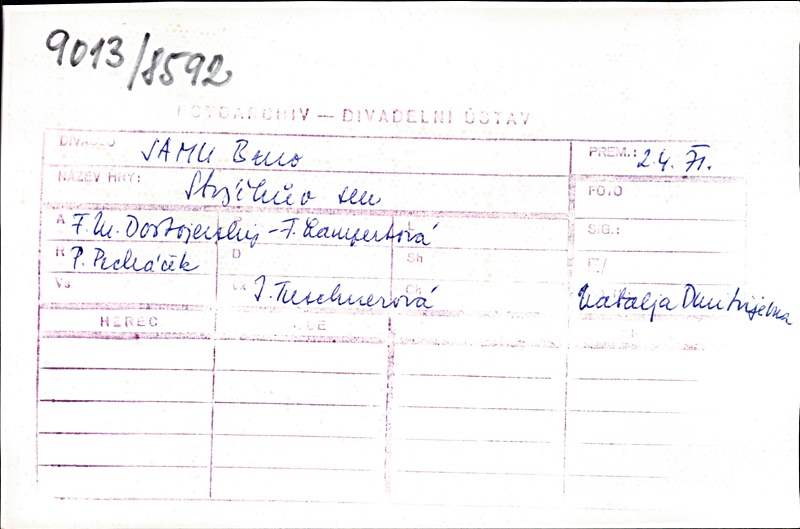 9013/8592
FOTOARCHIV — DIVADELNÍ ÚSTAV
DIVADLO JAMU Brno PREM.: 2.4.71.
NÁZEV HRY: Strýčkův sen FOTO
A F. M. Dostojevskij - F. Lampertová SIG.:
R P. Pecháček D Sh F./
Vs Vk J. Tuschnerová Ch Natalja Dmitrijevna
HEREC